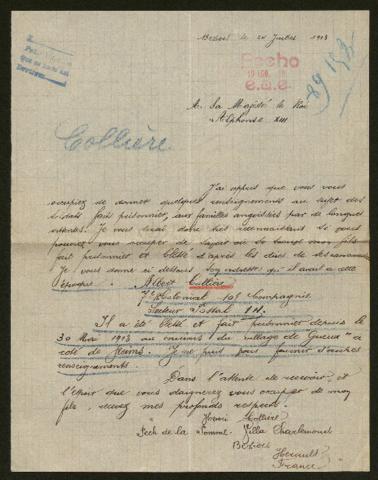 le 24 Juillet 1918
Fecho
e.a.e.
A. Sa Majesté le Roi
Alphonse XIII
Collière
J'ai appris que vous vous
occupiez de donner quelques renseignements au sujet des
soldats fait prisonnier, aux familles angoissées par de longues
attentes. Je vous serai donc très reconnaissant si vous
pouvez vous occuper de savoir où se trouve mon fils
fait prisonnier et blessé d'après les dires de ses camarades
Je vous donne ci dessous son adresse qu'il avait a cette
époque : Albert Collière
7e Colonial Compagnie
Secteur Postal
Il a été blessé et fait prisonnier depuis le
30 Mai 1918 au environs du village de "Gueux" a
coté de Reims. Je ne puis vous fournir d'autres
renseignements.
Dans l'attente de recevoir, et
l'espoir que vous daignerez vous occuper de mon
fils, recevez mes profonds respects.
Henri Collière
Pech de la Pomme Villa Charlemond
Béziers
Hérault
France